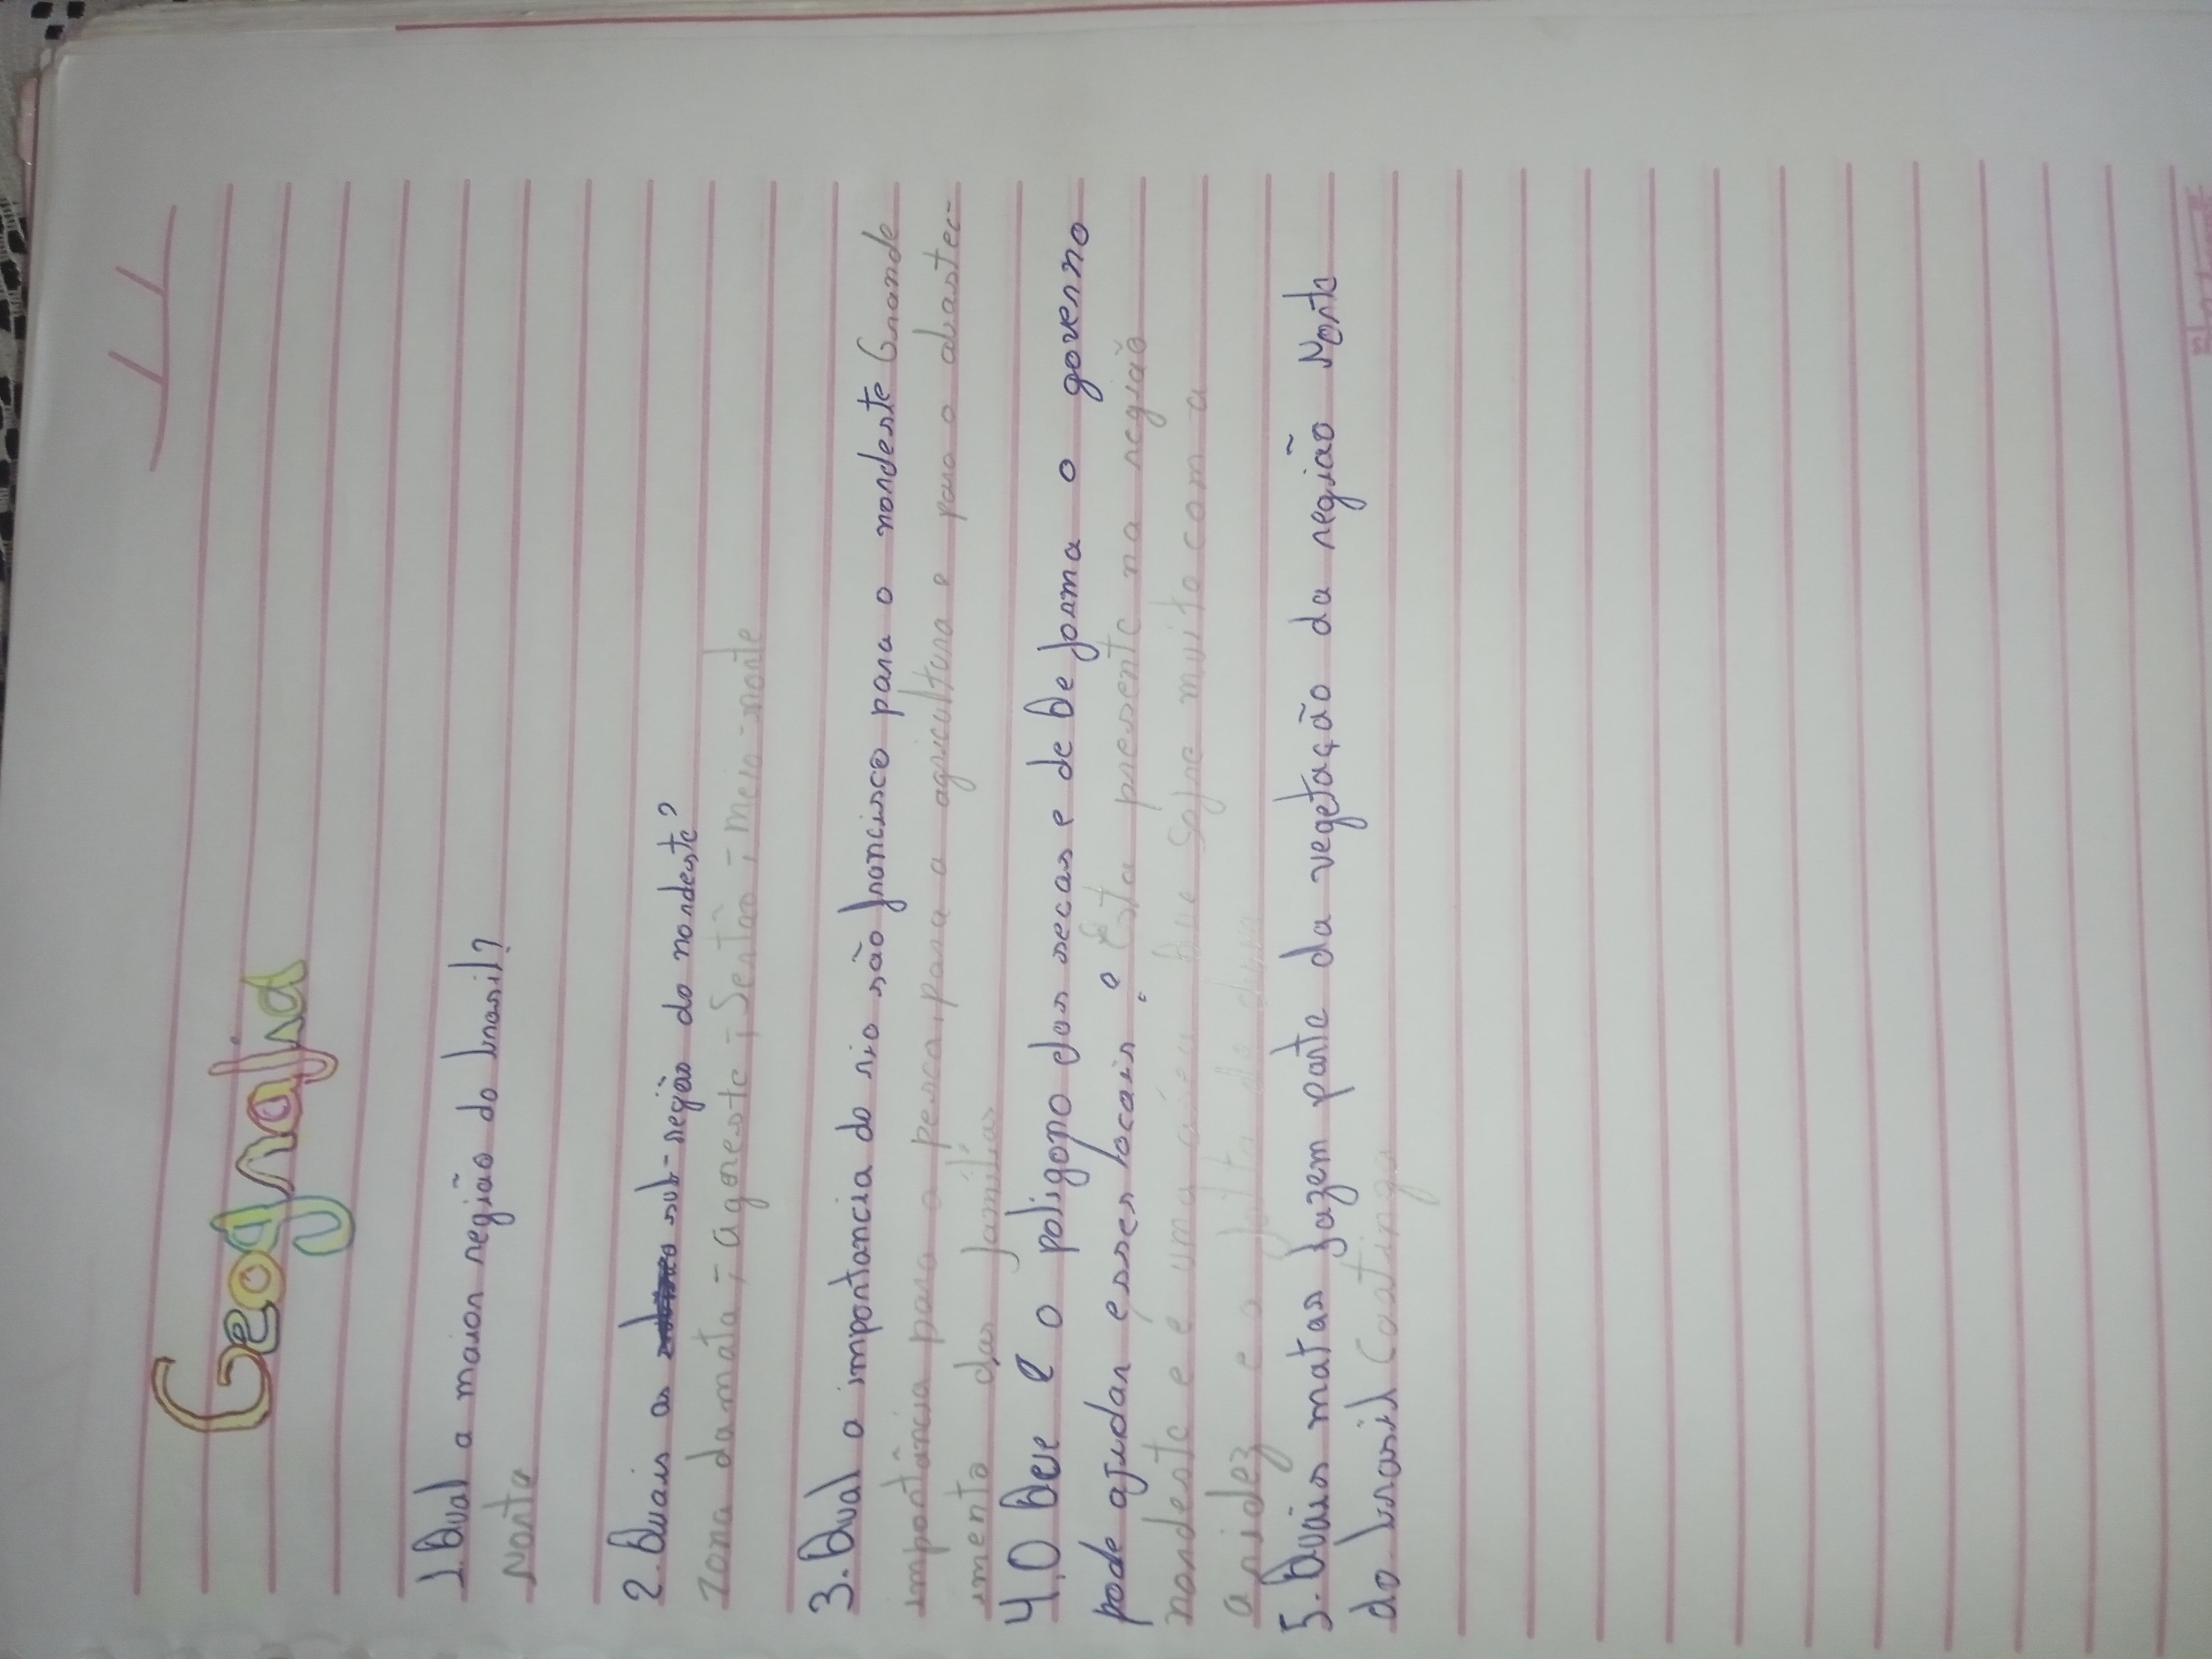 Geografia
1. Qual a maior região do brasil?
Norte
2. Quais as sub-região do nordeste?
Zona da mata; agreste; Sertão; meio-norte
3. Qual a importancia do rio são francisco para o nordeste Grande
importância para a pesca, para a agricultura e para o abastec-
imento das famílias
4. O Que é o poligono das secas e de Que forma o governo
pode ajudar esses locais? Esta presente na região
nordeste e é uma área que sofre muito com a
aridez e a falta de chuva
5. Quais matas fazem parte da vegetação da região Norte
do brasil Caatinga